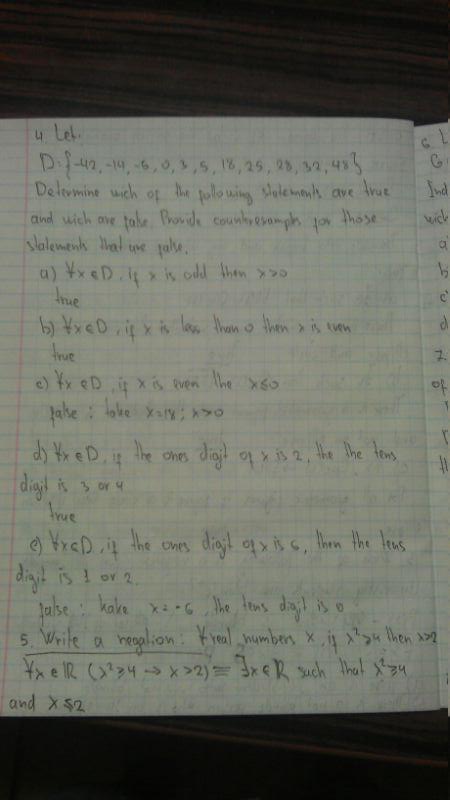 4 Let.
D:{-42, -14, -6, 0, 3, 5, 18, 25, 28, 32, 48}
Determine wich of the following statements are true
and wich are false. Provide counterexamples for those
statements that are false.
a) ∀x∈D, if x is odd then x>0
true
b) ∀x∈D, if x is less than 0 then x is even
true
c) ∀x∈D, if x is even the x≤0
false : take x=18; x>0
d) ∀x∈D, if the ones digit of x is 2, the the tens
digit is 3 or 4
true
e) ∀x∈D, if the ones digit of x is 6, then the tens
digit is 1 or 2.
false : kake x=-6, the tens digit is 0
5. Write a negation: ∀real numbers x, if x²≥4 then x>2
∀x∈ℝ (x²≥4 → x>2) ≡ ∃x∈ℝ such that x²≥4
and x≤2
6 L
G
Ind
wich
a
b
c
d
7.
of